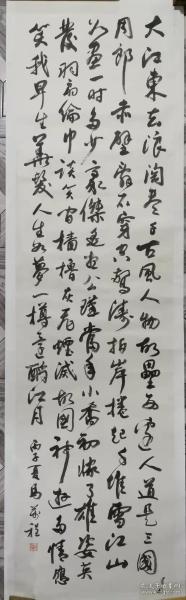 大江東去浪淘盡千古風人物故壘西邊人道是三國
周郎赤壁亂石穿空驚濤拍岸捲起千堆雪江山
如畫一時多少豪傑遙想公瑾當年小喬初嫁了雄姿英
發羽扇綸巾談笑間檣櫓灰飛煙滅故國神遊多情應
笑我早生華髮人生如夢一樽還酹江月 丙子夏馬程